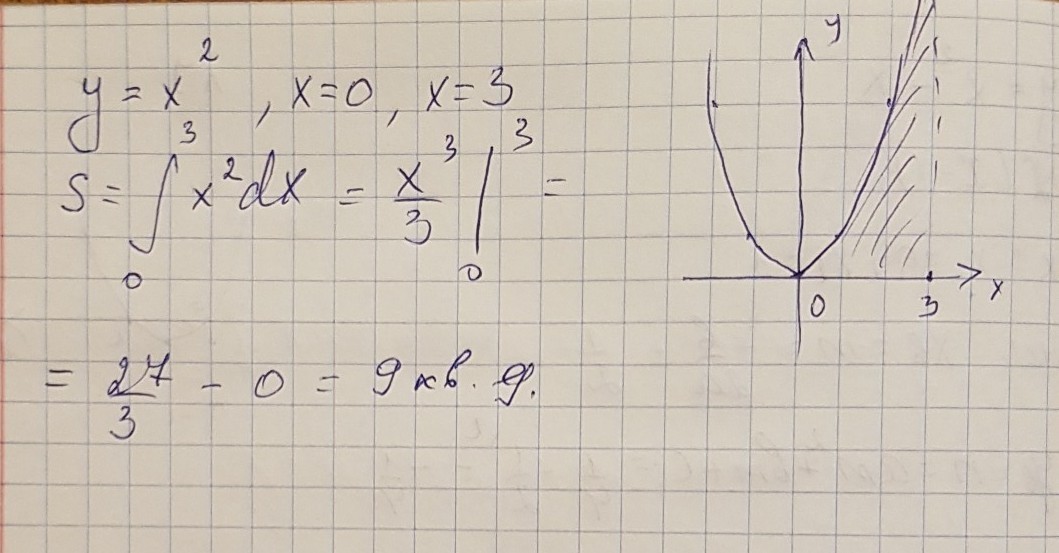 y = x², x=0, x=3
S = ∫₀³ x²dx = x³/3 |₀³ =
= 27/3 - 0 = 9 кв.
y
x
0
3